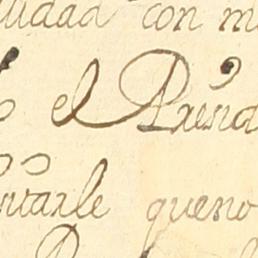 uidad con m
el Arena
ntarle queno